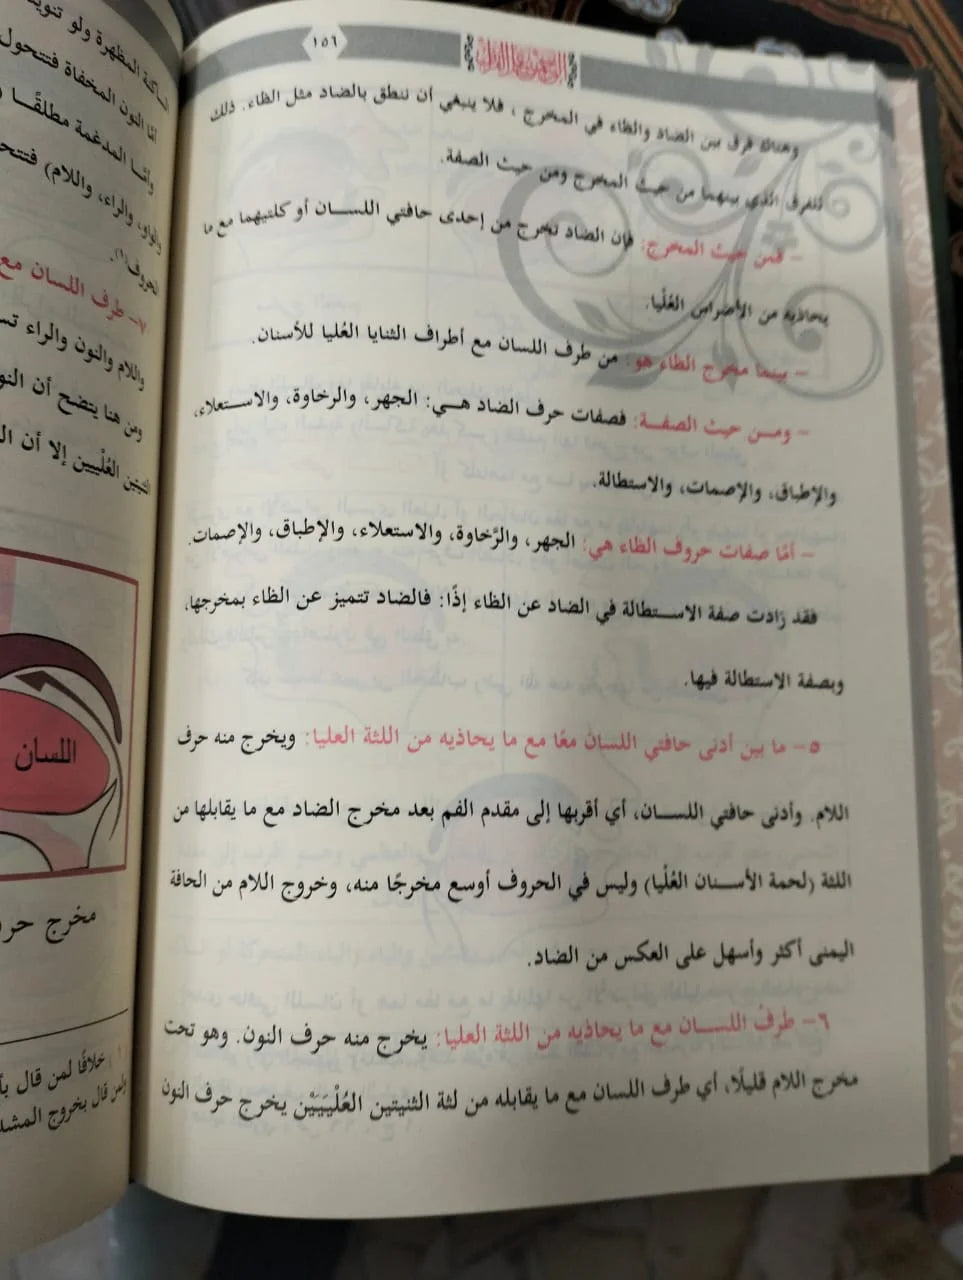 ١٥٦
وهناك فرق بين الضاد والظاء في المخرج، فلا ينبغي أن ننطق بالضاد مثل الظاء. ذلك
للفرق الذي بينهما من حيث المخرج ومن حيث الصفة.
- فمن حيث المخرج: فإن الضاد تخرج من إحدى حافتي اللسان أو كلتيهما مع ما
يحاذيه من الأضراس العُلْيا.
- بينما مخرج الظاء هو: من طرف اللسان مع أطراف الثنايا العُليا للأسنان.
- ومن حيث الصفة: فصفات حرف الضاد هي: الجهر، والرخاوة، والاستعلاء،
والإطباق، والإصمات، والاستطالة.
- أمّا صفات حروف الظاء هي: الجهر، والرَّخاوة، والاستعلاء، والإطباق، والإصمات.
فقد زادت صفة الاستطالة في الضاد عن الظاء إذًا: فالضاد تتميز عن الظاء بمخرجها،
وبصفة الاستطالة فيها.
٥- ما بين أدنى حافتي اللسان معًا مع ما يحاذيه من اللثة العليا: ويخرج منه حرف
اللام. وأدنى حافتي اللسان، أي أقربها إلى مقدم الفم بعد مخرج الضاد مع ما يقابلها من
اللثة (لحمة الأسنان العُلْيا) وليس في الحروف أوسع مخرجًا منه، وخروج اللام من الحافة
اليمنى أكثر وأسهل على العكس من الضاد.
٦- طرف اللسان مع ما يحاذيه من اللثة العليا: يخرج منه حرف النون. وهو تحت
مخرج اللام قليلًا، أي طرف اللسان مع ما يقابله من لثة الثنيتين العُلْيَيَيْن يخرج حرف النون
الساكنة المظهرة ولو
أمّا النون المخفاة فتتحول
وأمّا المدغمة مطلقًا
والواو، والراء، واللام)
الحروف(١).
٧- طرف اللسان مع
واللام والنون والراء
ومن هنا يتضح أن
الثنيتين العُلْيين إلا أن
اللسان
مخرج
خلافًا لمن قال
ولمن قال بخروج